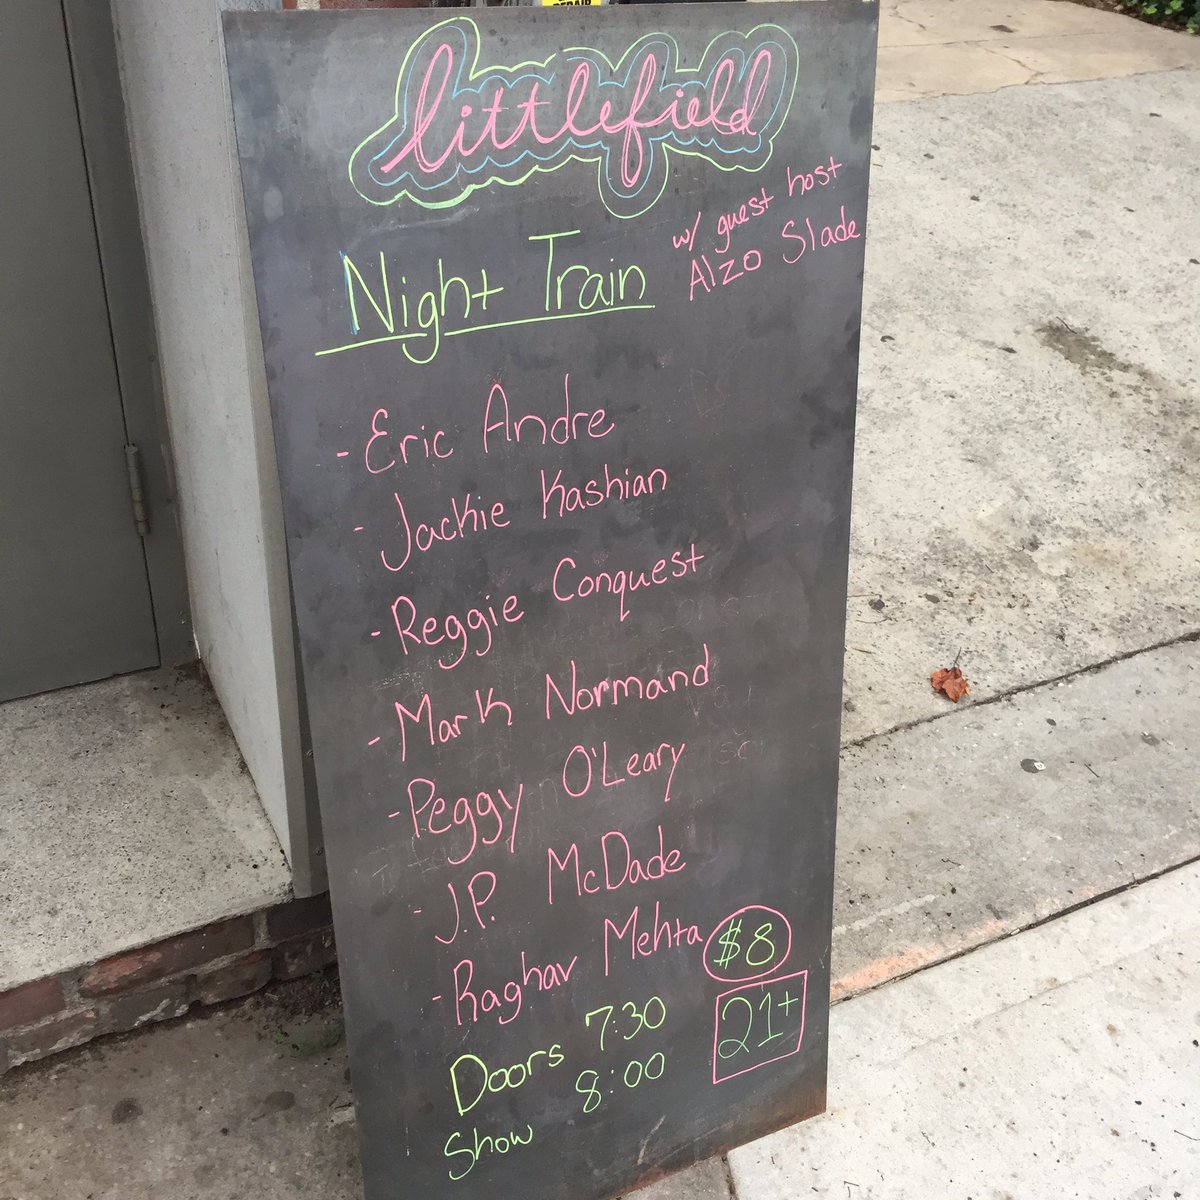 REPAIR
littlefield
w/ guest host
Alzo Slade
Night Train
- Eric Andre
- Jackie Kashian
- Reggie Conquest
- Mark Normand
- Peggy O'Leary
- J.P. McDade
- Raghav Mehta
$8
21+
Doors 7:30
Show 8:00